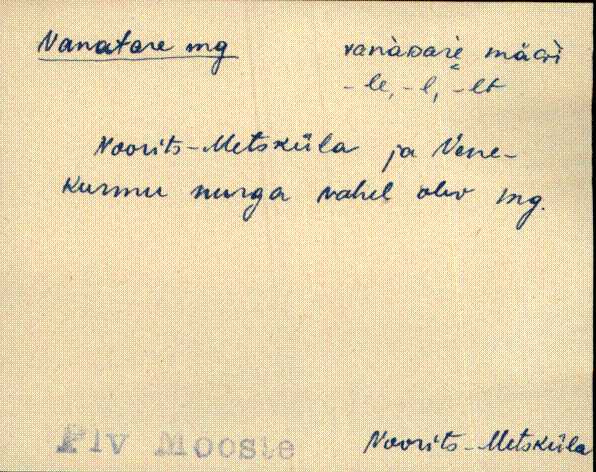 Vanatare mg
vanàᴅaŕè mäᴄì
-le, -l, -lt
Noorits-Metsküla ja Vene-
Kurmu nurga vahel olev mg.
Plv Mooste
Noorits-Metsküla